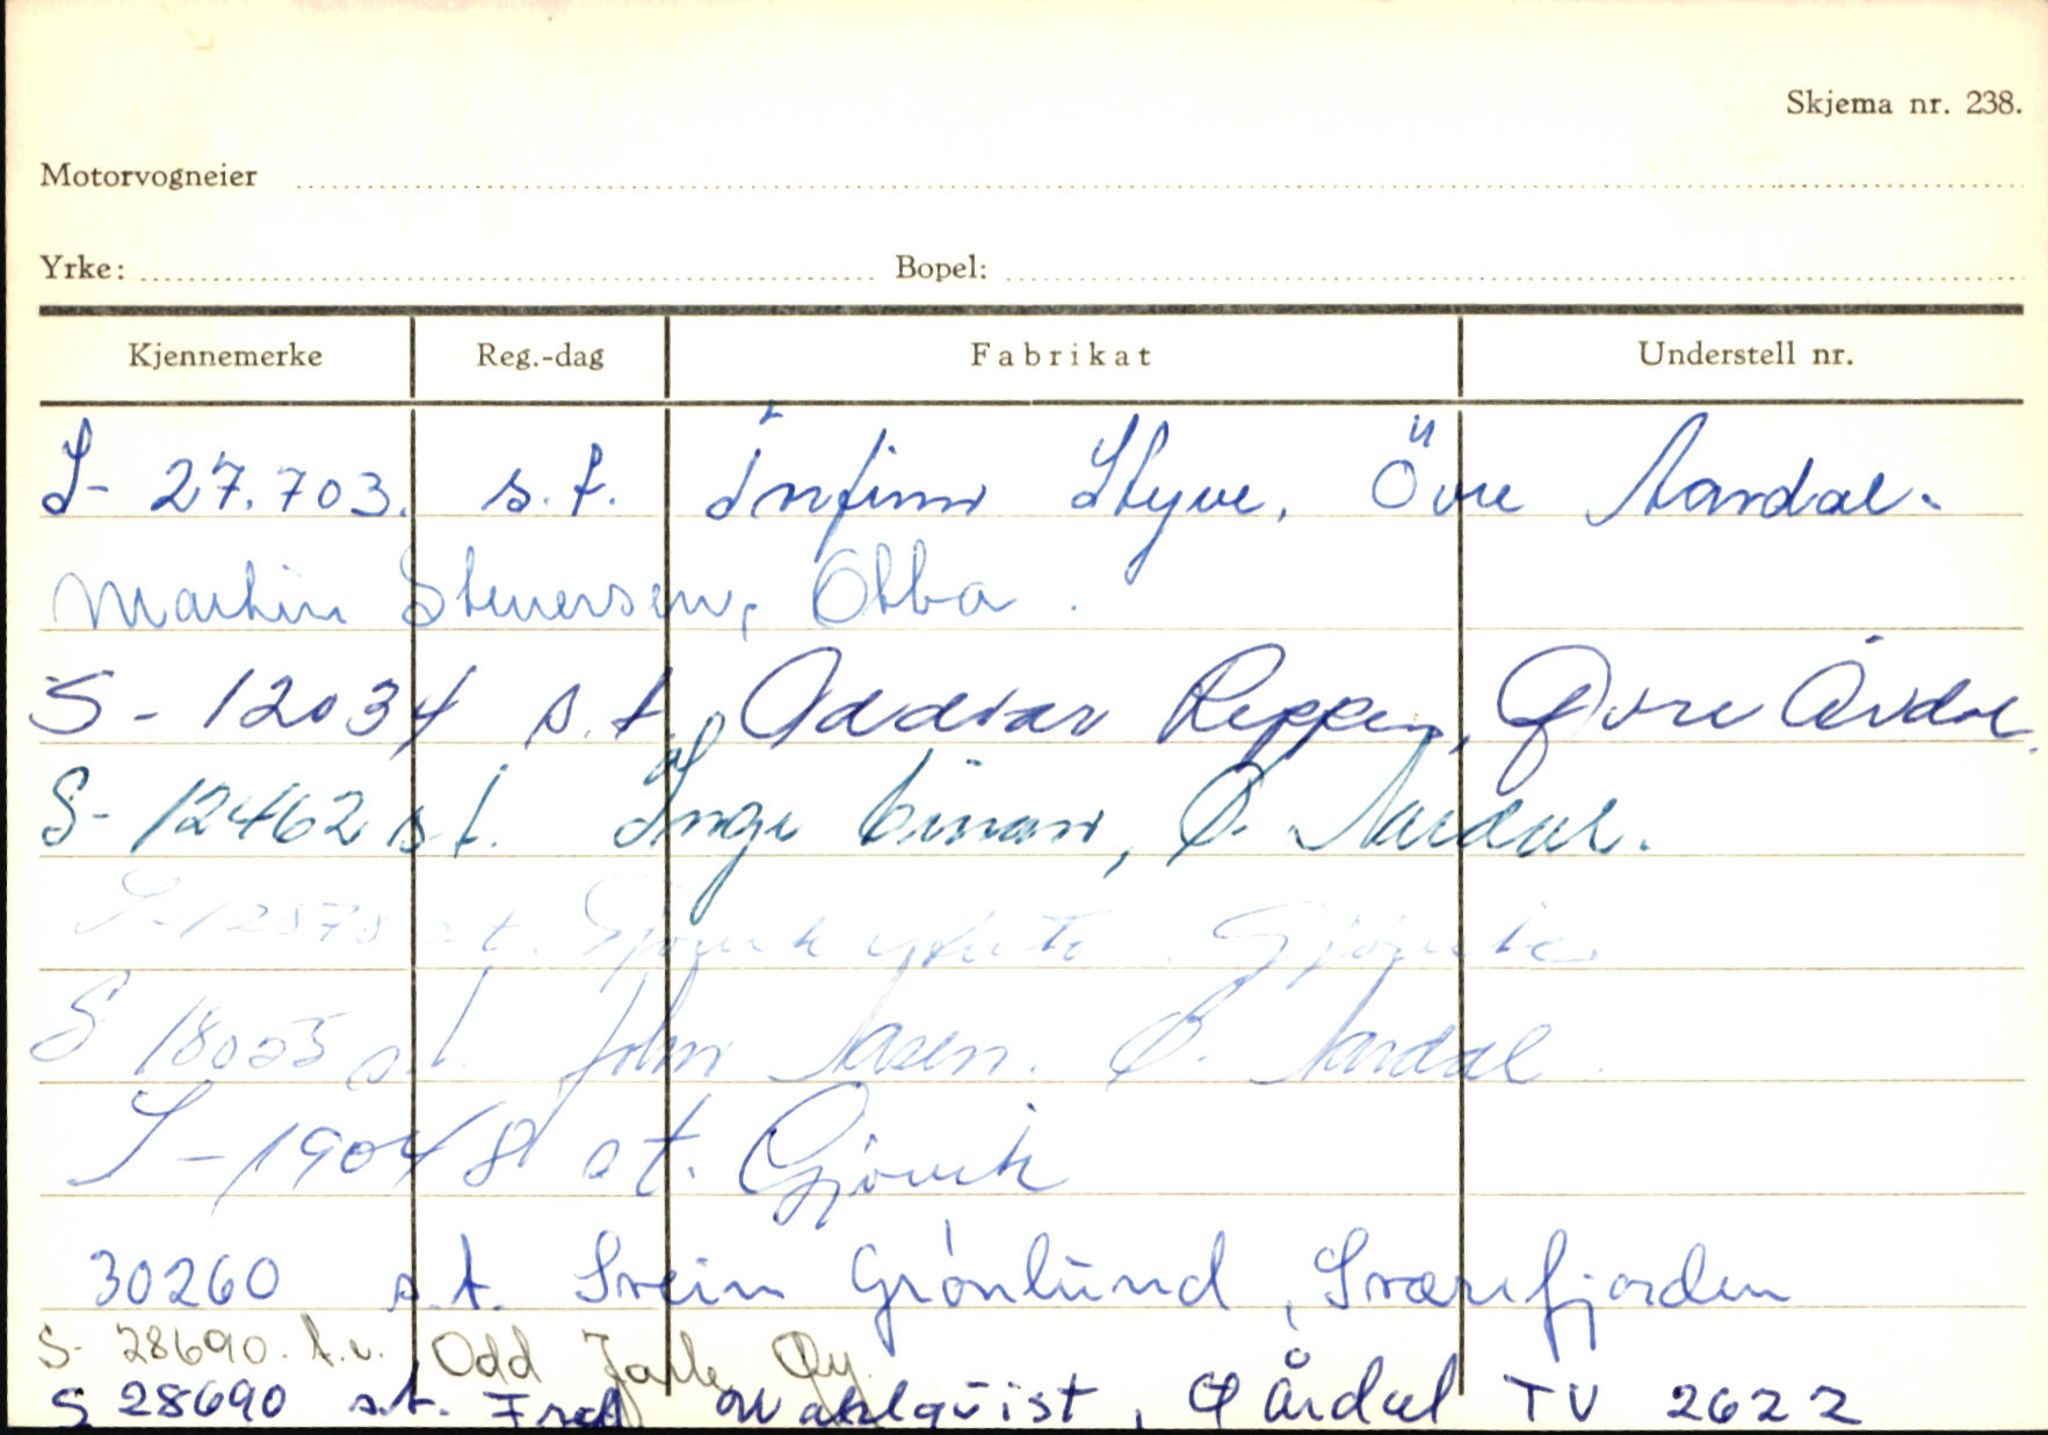 Skjema nr. 238.
Motorvogneier
Yrke: Bopel:
Kjennemerke Reg.-dag Fabrikat Understell nr.
S- 27.703. s.t. Arnfinn Styve, Övre Aardal.
Martin Stenersen, Otba.
S - 12034 s.t. Oddvar Reppen, Øvre Årdal.
S- 12462 s.t. Inge Einan, Ø. Aardal.
S-12878 s.t. Gjøvik Gjøvik
S 18025 s.t. John Aasen. Ø. Aardal.
S-19048 s.t. Gjövik
30260 s.t. Svein Grønlund, Sværefjorden
S- 28690. t.v. Odd Jarle Øy.
S 28690 s.t. Fred Wahlqvist, Ø Årdal TV 2622